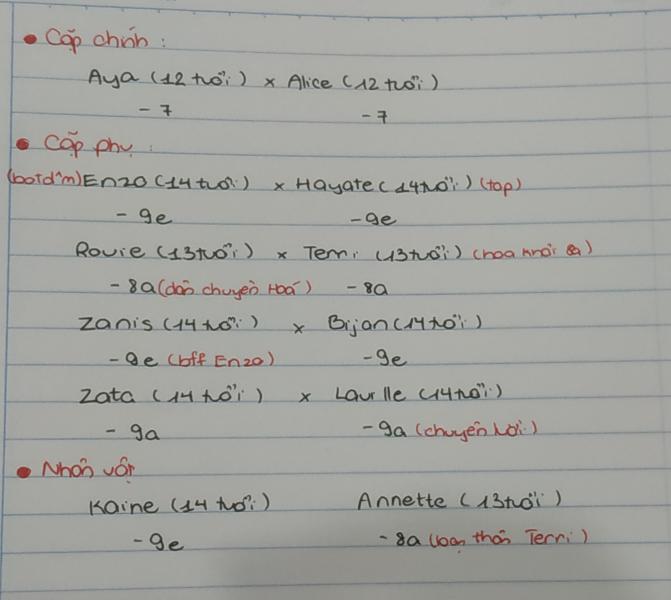 • Cặp chính :
Aya (12 tuổi) x Alice (12 tuổi)
- 7 - 7
• Cặp phụ :
(botd^m) Enzo (14 tuổi) x Hayate (14 tuổi) (top)
- 9e - 9e
Rouie (13 tuổi) x Terri (13 tuổi) (hoa khôi 8a)
- 8a (dân chuyên Hoá) - 8a
Zanis (14 tuổi) x Bijan (14 tuổi)
- 9e (bff Enzo) - 9e
Zata (14 tuổi) x Laville (14 tuổi)
- 9a - 9a (chuyên Lời)
• Nhân vật
Kaine (14 tuổi) Annette (13 tuổi)
- 9e - 8a (bạn thân Terri)